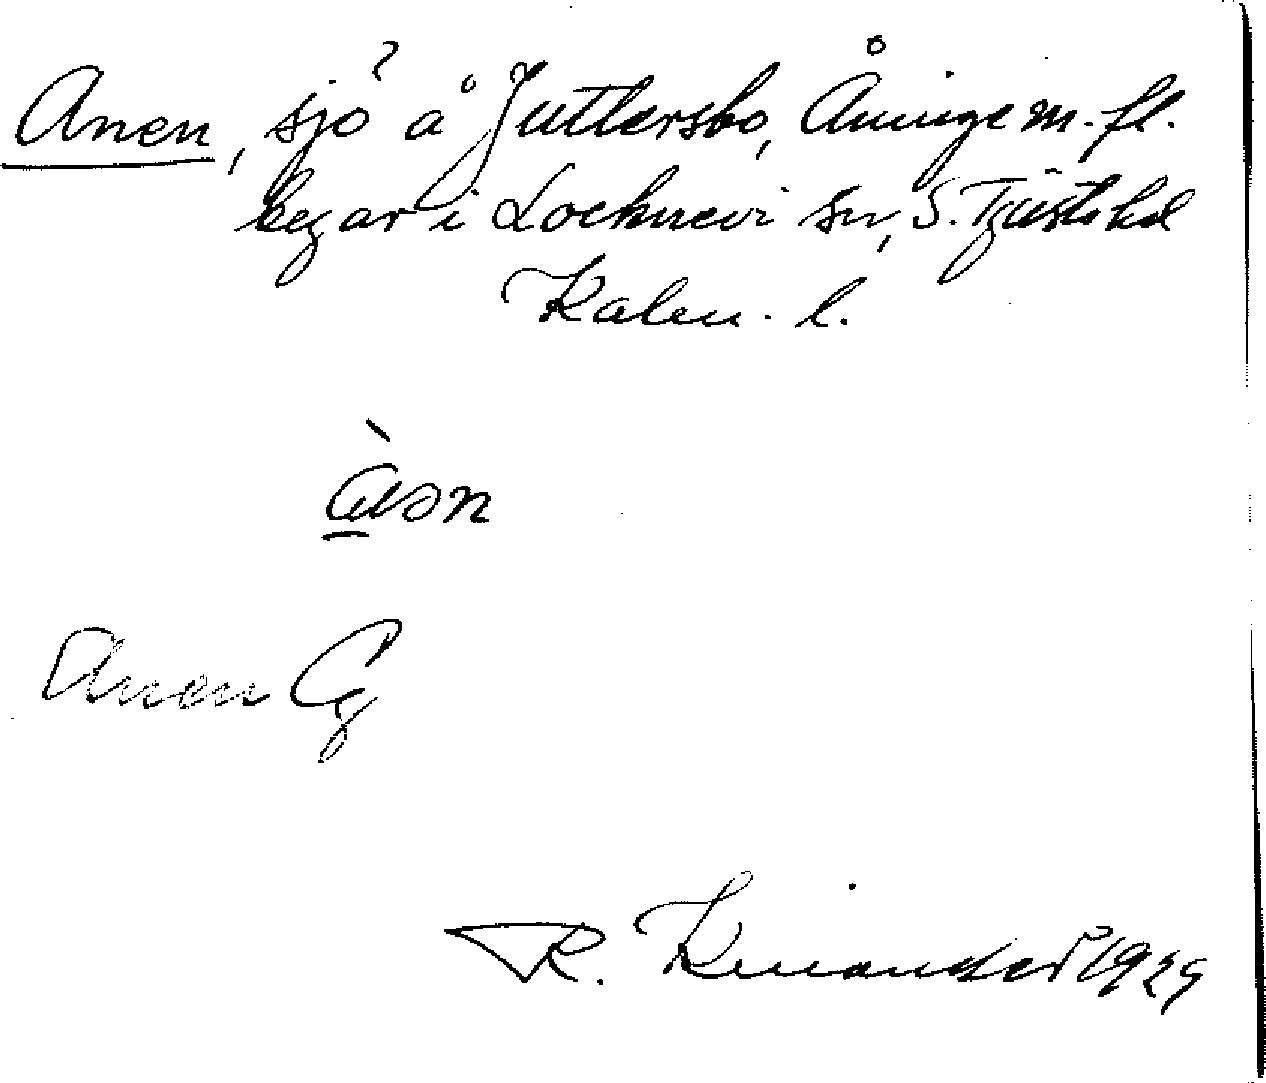 Anen, sjö å Juttersbo, Åninge m. fl.
egor i Locknevi sn, S. Tjusts hd
Kalm. l.
Anen Cg
R. Kinander 1929